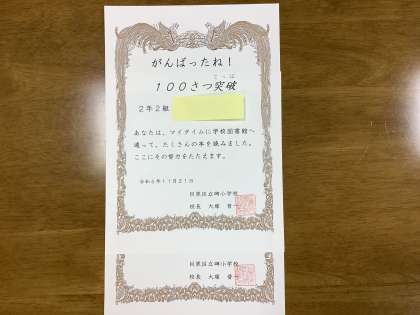 がんばったね！
とっぱ
１００さつ突破
２年２組
あなたは、マイタイムに学校図書館へ
通って、たくさんの本を読みました。
ここにその努力をたたえます。
令和６年１１月２１日
目黒区立岬小学校
校長　大塚　晋
目黒区立岬小学校
校長　大塚　晋